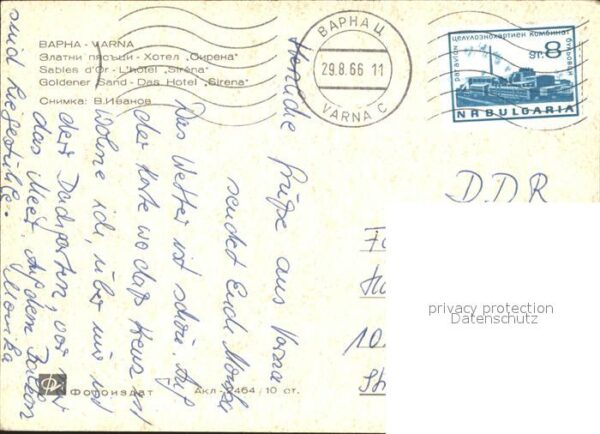 ВАРНА - VARNA
Златни пясъци - Хотел „Сирена“
Sables d'Or - L'hôtel „Siréna“
Goldener Sand - Das Hotel „Sirena“
Снимка: В. Иванов
ВАРНА Ц
29.8.66 11
VARNA C
par avion
целулознохартиен комбинат
8 ст.
NR BULGARIA
Herzliche Grüße aus Varna
sendet Euch Monika
Das Wetter ist schön. Auf
der Karte wo das Kreuz ist
wohne ich, über mir ist
der Dachgarten, vor mir
das Meer. Auf dem Balkon
sind Liegestühle.
Monika
DDR
10
privacy protection
Datenschutz
Фотоиздат
Акл - 2464 / 10 ст.